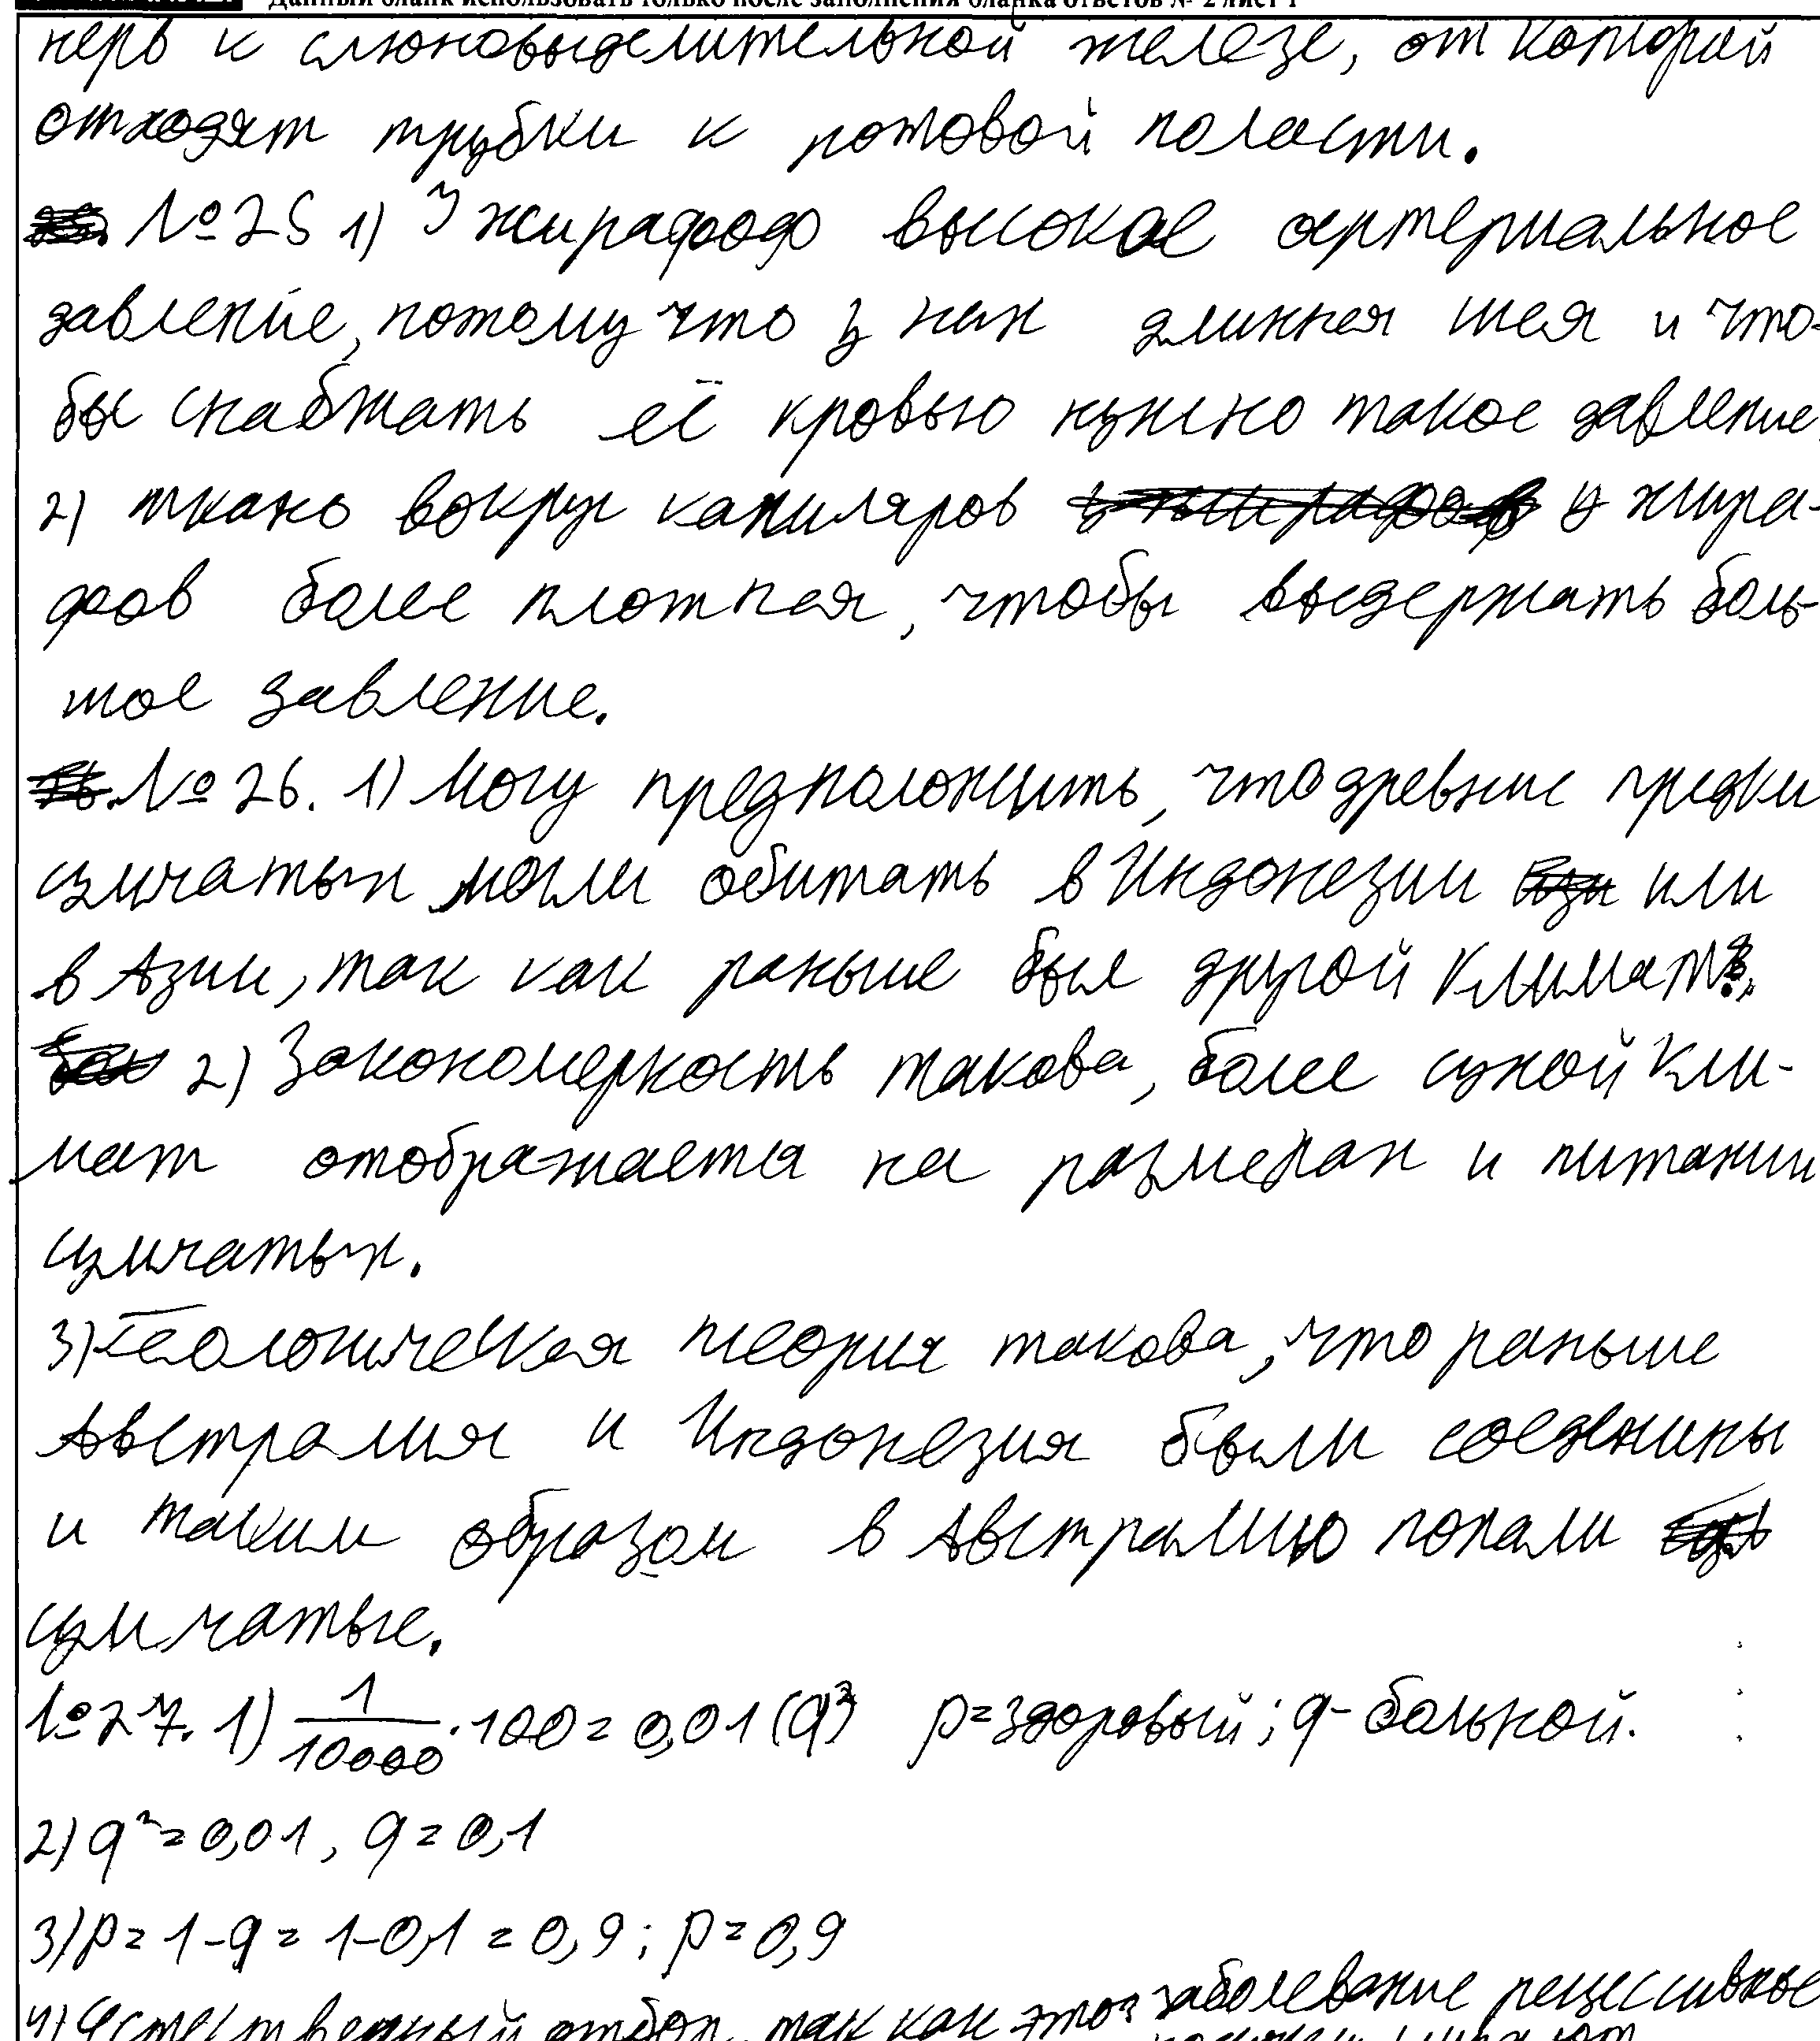 Данный бланк использовать только после заполнения бланка ответов № 2 лист 1
нерв к слюновыделительной железе, от которой
отходят трубки к ротовой поласти.
№25 1) У жирафоф высокое артериальное
давление, потому что у них длинная шея и что-
бы снабжать её кровью нужно такое давление.
2) ткань вокруг капиляров у жира-
фов более плотная, чтобы выдержать боль-
шое давление.
№26. 1) Могу предположить, что древние предки
сумчатых могли обитать в Индонезии или
в Азии, так как раньше был другой климат.
2) Закономерность такова, более сухой кли-
мат отображается на размерах и питании
сумчатых.
3) Геологическая теория такова, что раньше
Австралия и Индонезия были соеденины
и таким образом в Австралию попали
сумчатые.
№27. 1) 1/10000 · 100 = 0,01 (q²) p = здоровый; q - больной.
2) q² = 0,01, q = 0,1
3) p = 1 - q = 1 - 0,1 = 0,9; p = 0,9
4) Естественный отбор, так как это заболевание рецессивное